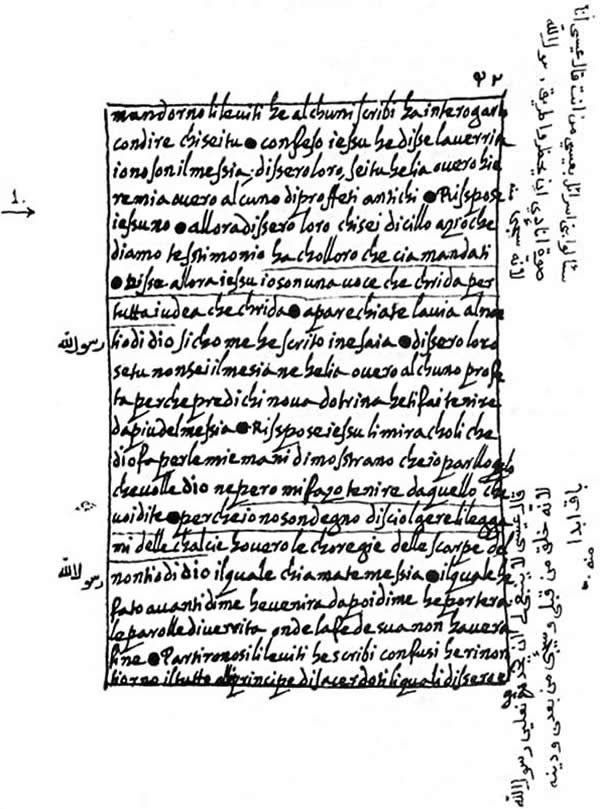 ٤٢
mandorno li leuiti he alchuni scribi ha interogarlo
condire chi seitu confeso iessu he disse la uerrita
io no son il messia: dissero loro, sei tu helia ouero hie
remia ouero alcuno di proffeti antichi Risspose
iessu no allora dissero loro chi sei di cillo azio che
diamo tesstimonio ha cholloro che cia mandati
Disse allora iessu io son una uoce che chrida per
tutta iudea che chrida aparechiate la uia al no
tio di dio sicho me he scrito in esaia dissero loro
se tu non sei il mesia ne helia ouero alchuno profe
ta perche predichi noua dotrina he ti fai tenire
da piu del messia Risspose iessu li mirachuli che
dio fa per le mie mani dimostrano che io parllo quelo
che uolle dio ne pero mi fazo tenire da quello che
uoi dite perche io no son degno di sciolgere li legga
mi delle chalcie houero le choregie delle scarpe del
nontio di dio il quale chiamate messia il quale he
fato auanti di me he uenira da poi di me he portera
le parolle di uerita onde la fede sua non hauera
fine Partironosi li leuiti he scribi confusi he rinon
tiorno il tutto al principe di sacerdoti li quali dissero
1.
رسول الله
رسول الله
سئالوا بني اسرائل بعيسى من انت قال عيسى انا
صوة انادي ان يحضروا طريق رسول الله
لانه سيجئ
قال عيسى لا ينبغي لي ان نعلي رسول الله
لانه خلق من قبلي وسيجئ من بعدي ودينه
ابدا باق
منه